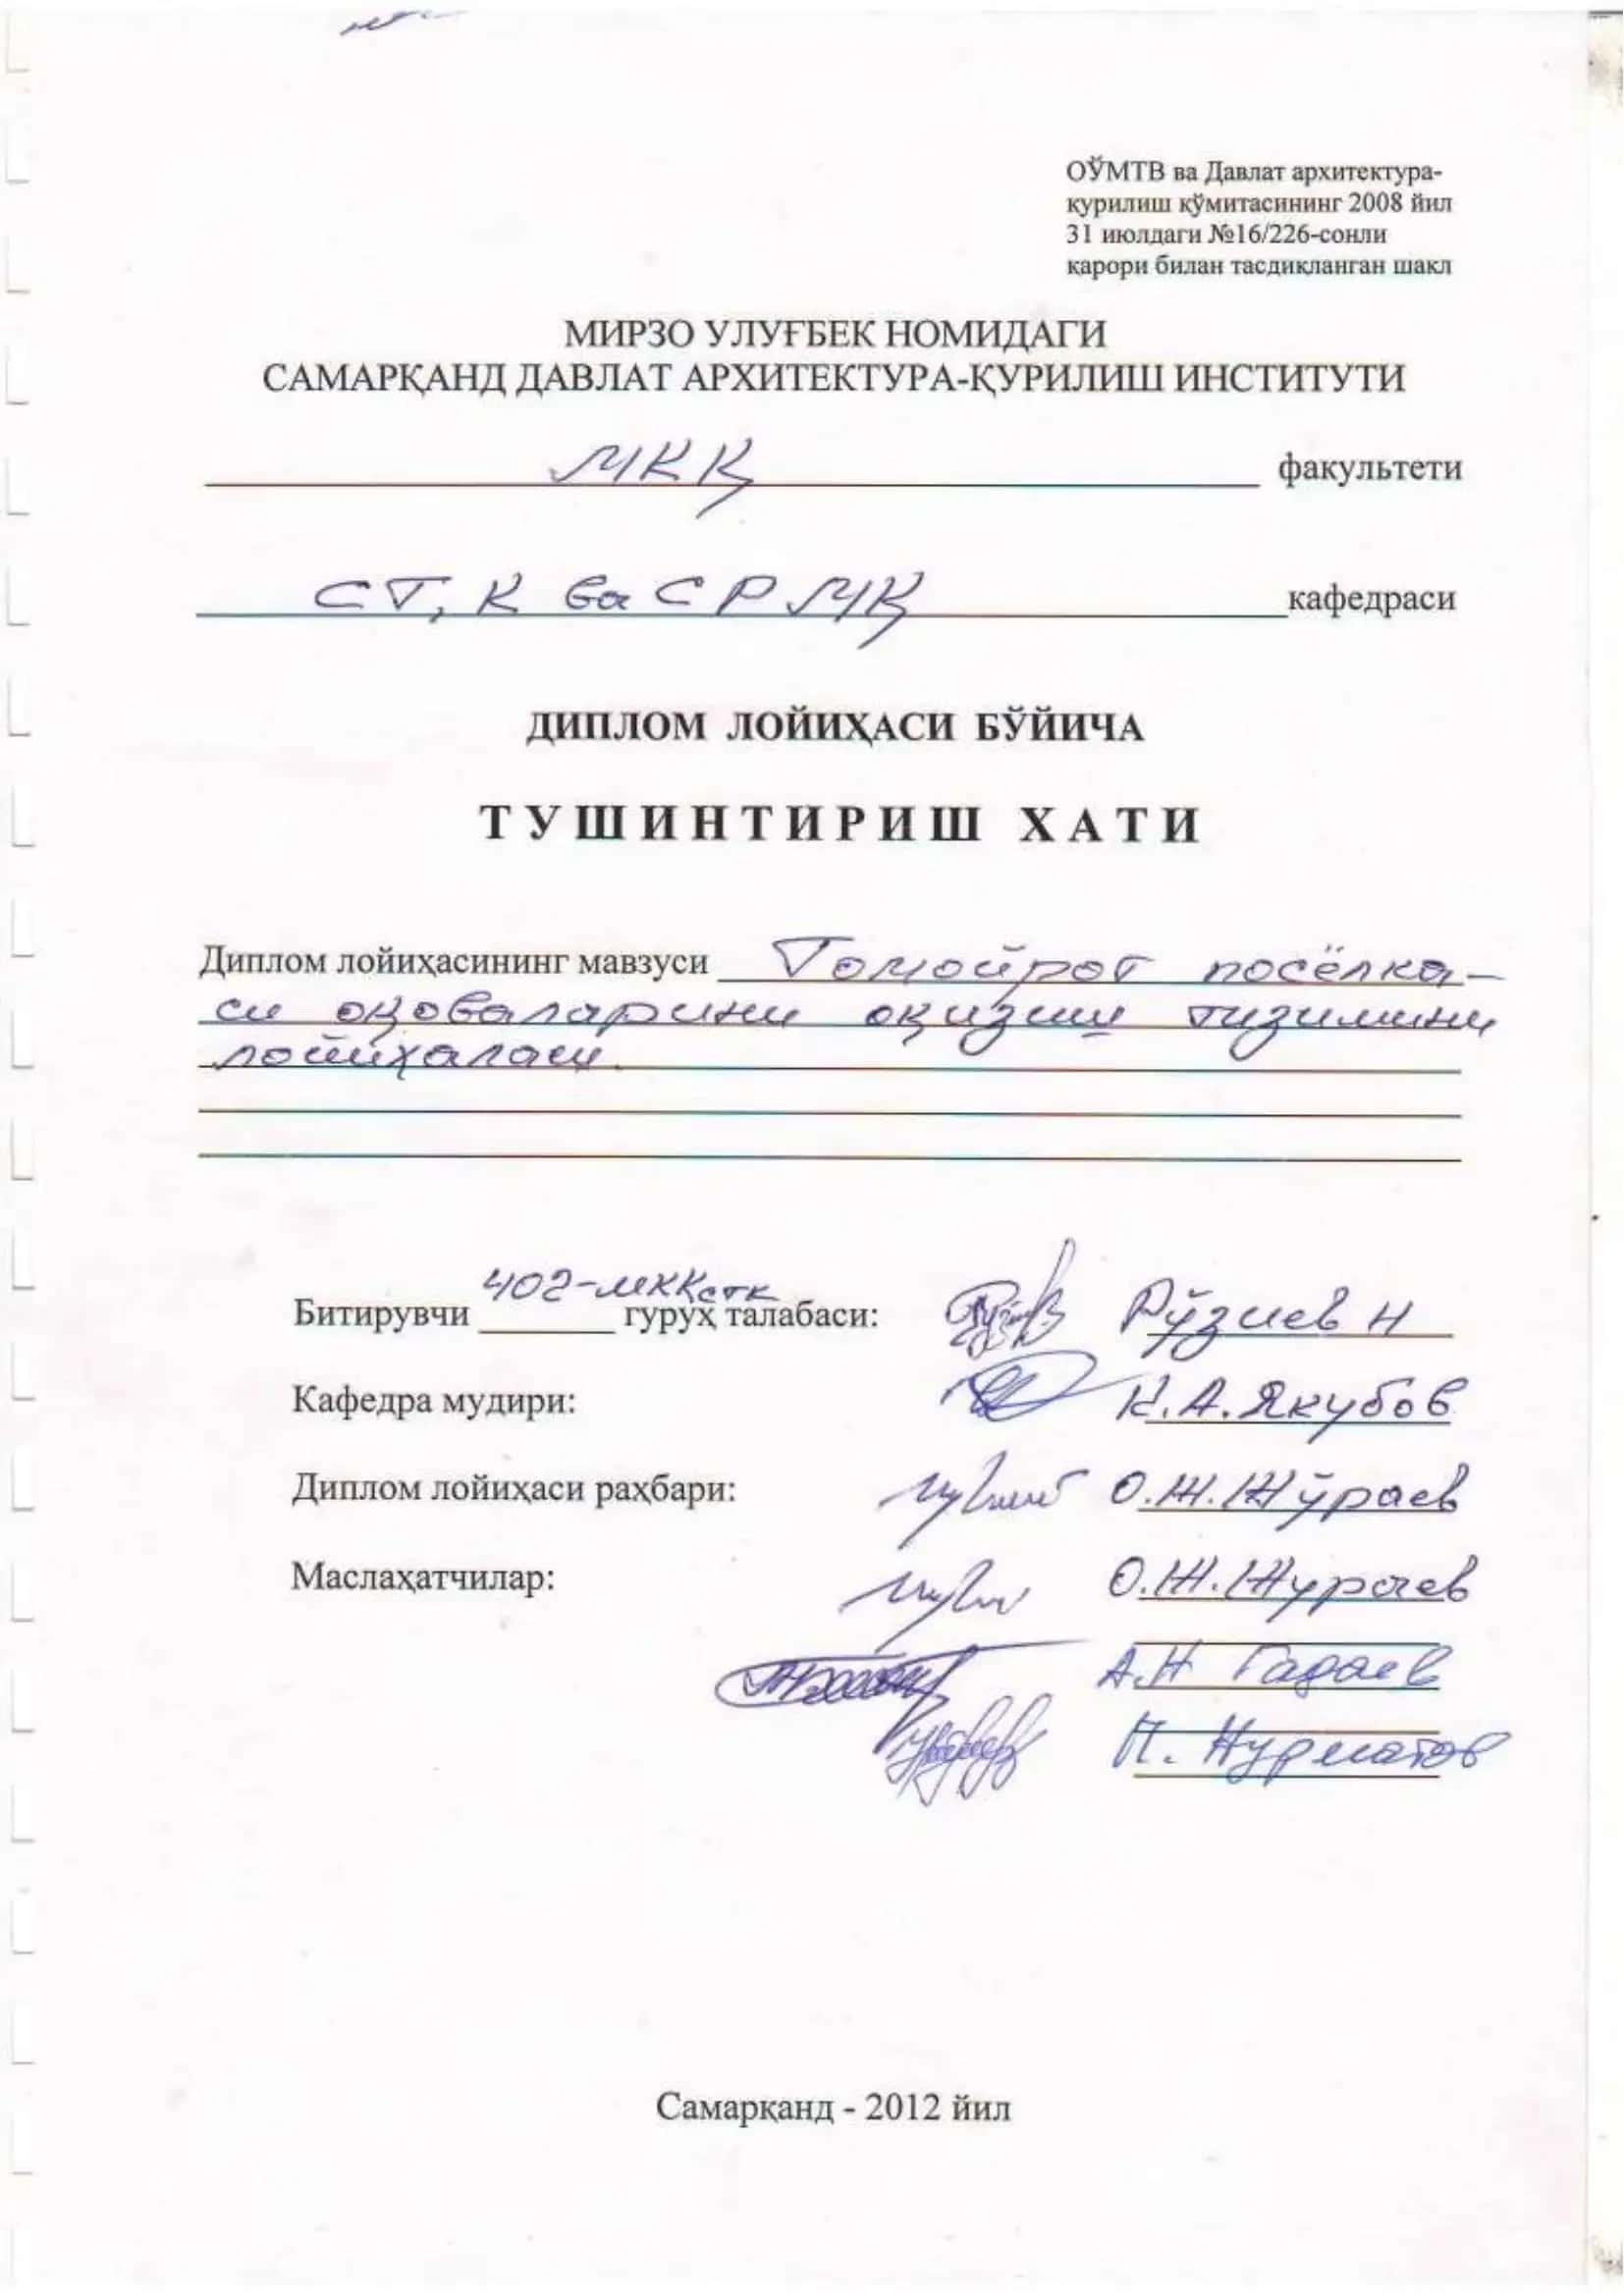 ОЎМТВ ва Давлат архитектура-
қурилиш қўмитасининг 2008 йил
31 июлдаги №16/226-сонли
қарори билан тасдиқланган шакл
МИРЗО УЛУҒБЕК НОМИДАГИ
САМАРҚАНД ДАВЛАТ АРХИТЕКТУРА-ҚУРИЛИШ ИНСТИТУТИ
МКҚ факультети
СТ, К ва СРМҚ кафедраси
ДИПЛОМ ЛОЙИҲАСИ БЎЙИЧА
ТУШИНТИРИШ ХАТИ
Диплом лойиҳасининг мавзуси Томойрот посёлка-
си оқоваларини оқизиш тизимини
лойиҳалаш.
Битирувчи 402-МККстк гуруҳ талабаси: Рўзиев Н
Кафедра мудири: К.А.Якубов
Диплом лойиҳаси раҳбари: О.Ж.Жўраев
Маслаҳатчилар: О.Ж.Жураев
А.Н Гадаев
П. Нурматов
Самарқанд - 2012 йил